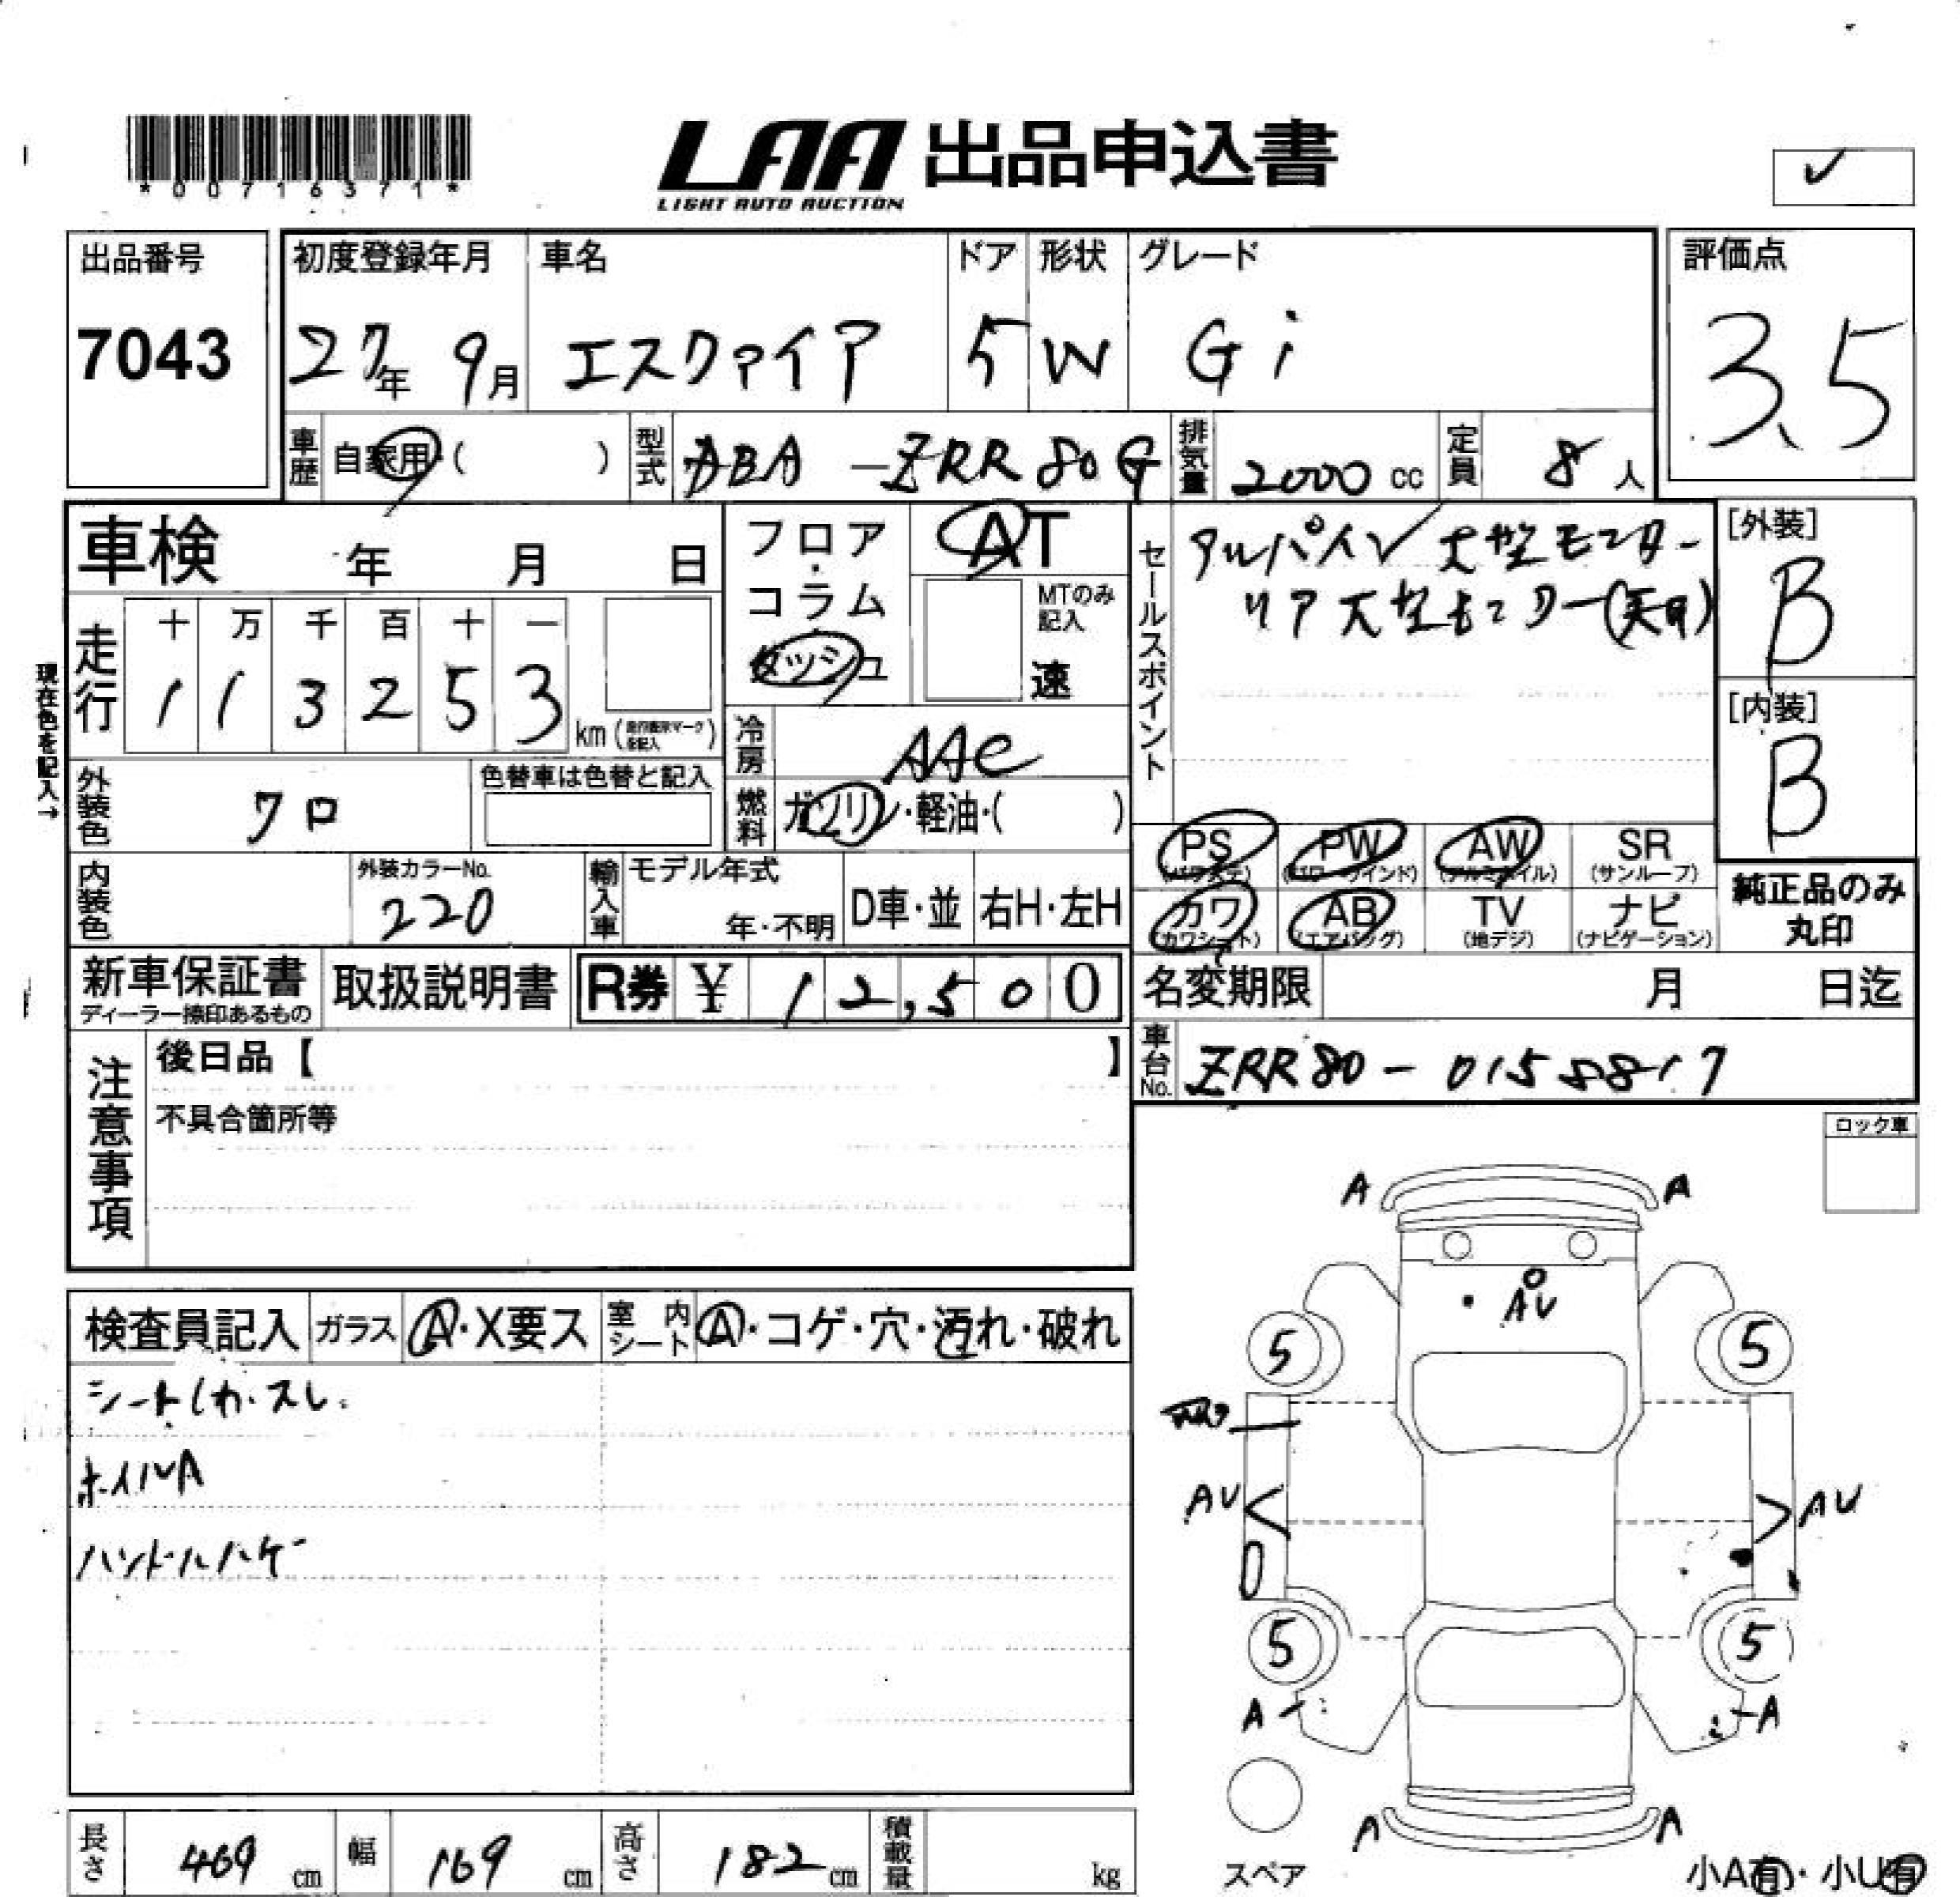 *00716371*
LAA 出品申込書
LIGHT AUTO AUCTION
✓
出品番号
7043
初度登録年月
27年 9月
車名
エスクァイア
ドア
5
形状
W
グレード
Gi
評価点
3.5
車歴
自家用・( )
型式
DBA-ZRR80G
排気量
2000 cc
定員
8 人
車検 年 月 日
フロア・コラム
ダッシュ
AT
MTのみ記入
速
セールスポイント
アルパイン大型モニター
リア大型モニター(天井)
[外装]
B
[内装]
B
現在色を記入→
走行
十 万 千 百 十 一
1 1 3 2 5 3
km
冷房
AAC
外装色
クロ
色替車は色替と記入
燃料
ガソリン・軽油・( )
PS
(パワステ)
PW
(パワーウインド)
AW
(アルミホイル)
SR
(サンルーフ)
内装色
外装カラーNo.
220
輸入車
モデル年式
年・不明
D車・並
右H・左H
カワ
(カワシート)
AB
(エアバッグ)
TV
(地デジ)
ナビ
(ナビゲーション)
純正品のみ
丸印
新車保証書
ディーラー捺印あるもの
取扱説明書
R券 ¥ 12,500
名変期限 月 日迄
注意事項
後日品【 】
不具合箇所等
車台No.
ZRR80-0158817
ロック車
検査員記入
ガラス
A・X要ス
室内シート
A・コゲ・穴・汚れ・破れ
シートしわ・スレ
ホイルA
ハンドルハゲ
A A
AU
5 5
AU AU
5 5
A A
A A
スペア
小A有・小U有
長さ 469 cm
幅 169 cm
高さ 182 cm
積載量 kg